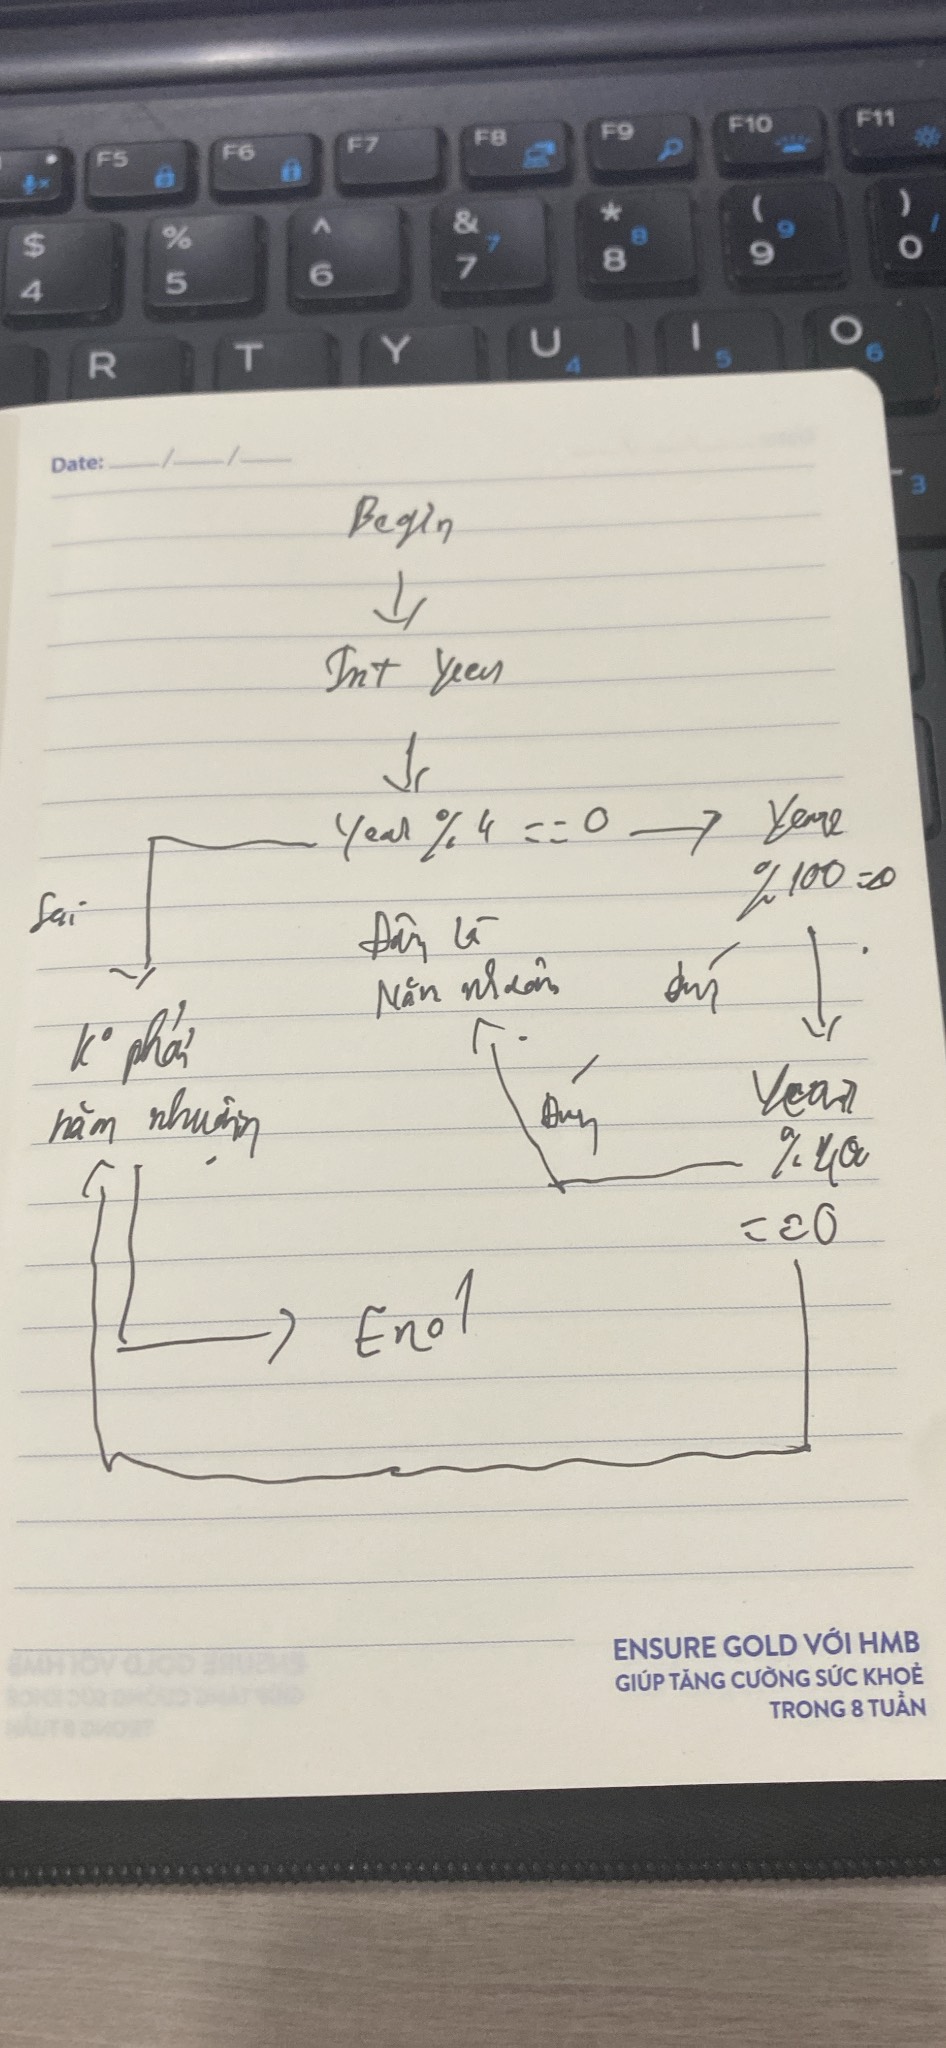 F5
F6
F7
F8
F9
F10
F11
$ 4
% 5
^ 6
& 7 7
* 8 8
( 9 9
) 0 /
R
T
Y
U 4
I 5
O 6
3
Date: ___/___/___
Begin
Int Year
Year % 4 == 0
Year
% 100 = 0
Sai
Đây là
Năm nhuận
đúng
Kº phải
năm nhuận
Đúng
Year
% 400
== 0
End
ENSURE GOLD VỚI HMB
GIÚP TĂNG CƯỜNG SỨC KHOẺ
TRONG 8 TUẦN